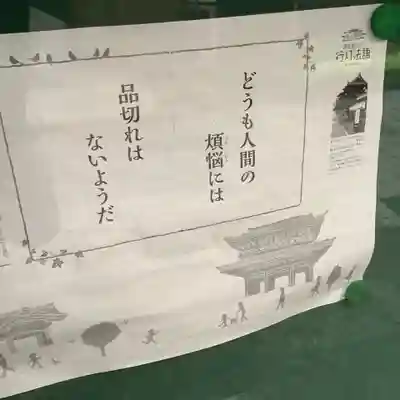 どうも人間の
煩悩には
品切れは
ないようだ